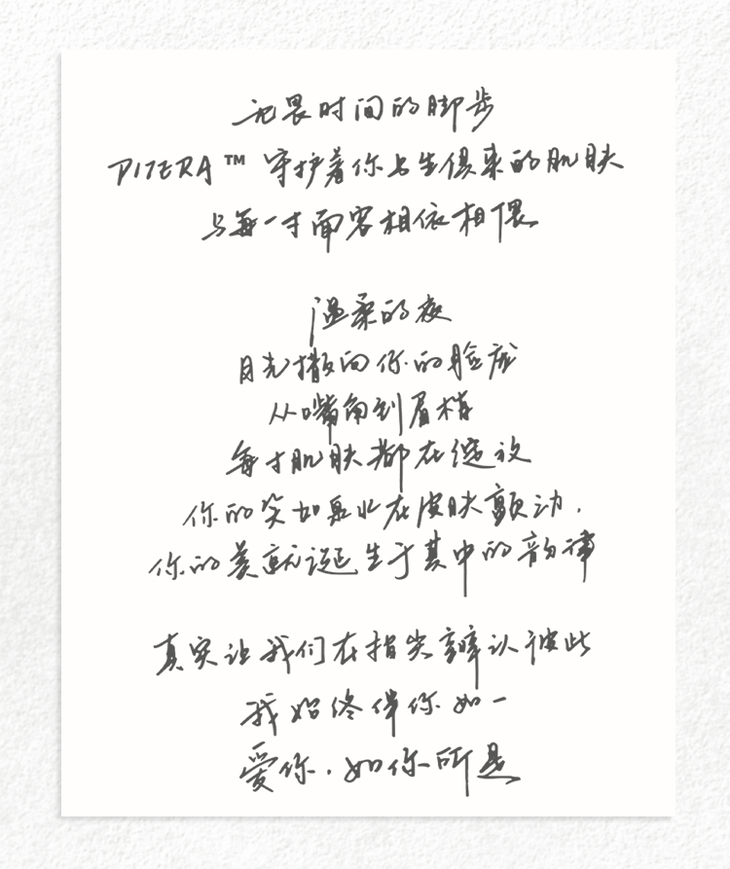 无畏时间的脚步
PITERA™ 守护着你与生俱来的肌肤
与每一寸面容相依相偎
温柔的夜
目光撒向你的脸庞
从嘴角到眉梢
每寸肌肤都在绽放
你的笑如泉水在皮肤颤动,
你的美就诞生于其中的韵律
真实让我们在指尖辨认彼此
我始终伴你如一
爱你,如你所是